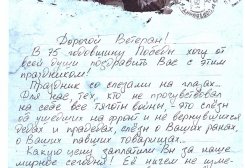 Дорогой Ветеран!
В 75 годовщину Победы хочу от
всей души поздравить Вас с этим
праздником!
Праздник со слезами на глазах...
Для нас, тех, кто не прочувствовал
на себе все тяготы войны, - это слёзы
об ушедших на фронт и не вернувшихся
дедах и прадедах, слёзы о Ваших ранах,
о Ваших павших товарищах...
Какую цену заплатили Вы за наше
мирное сегодня! Её ничем не